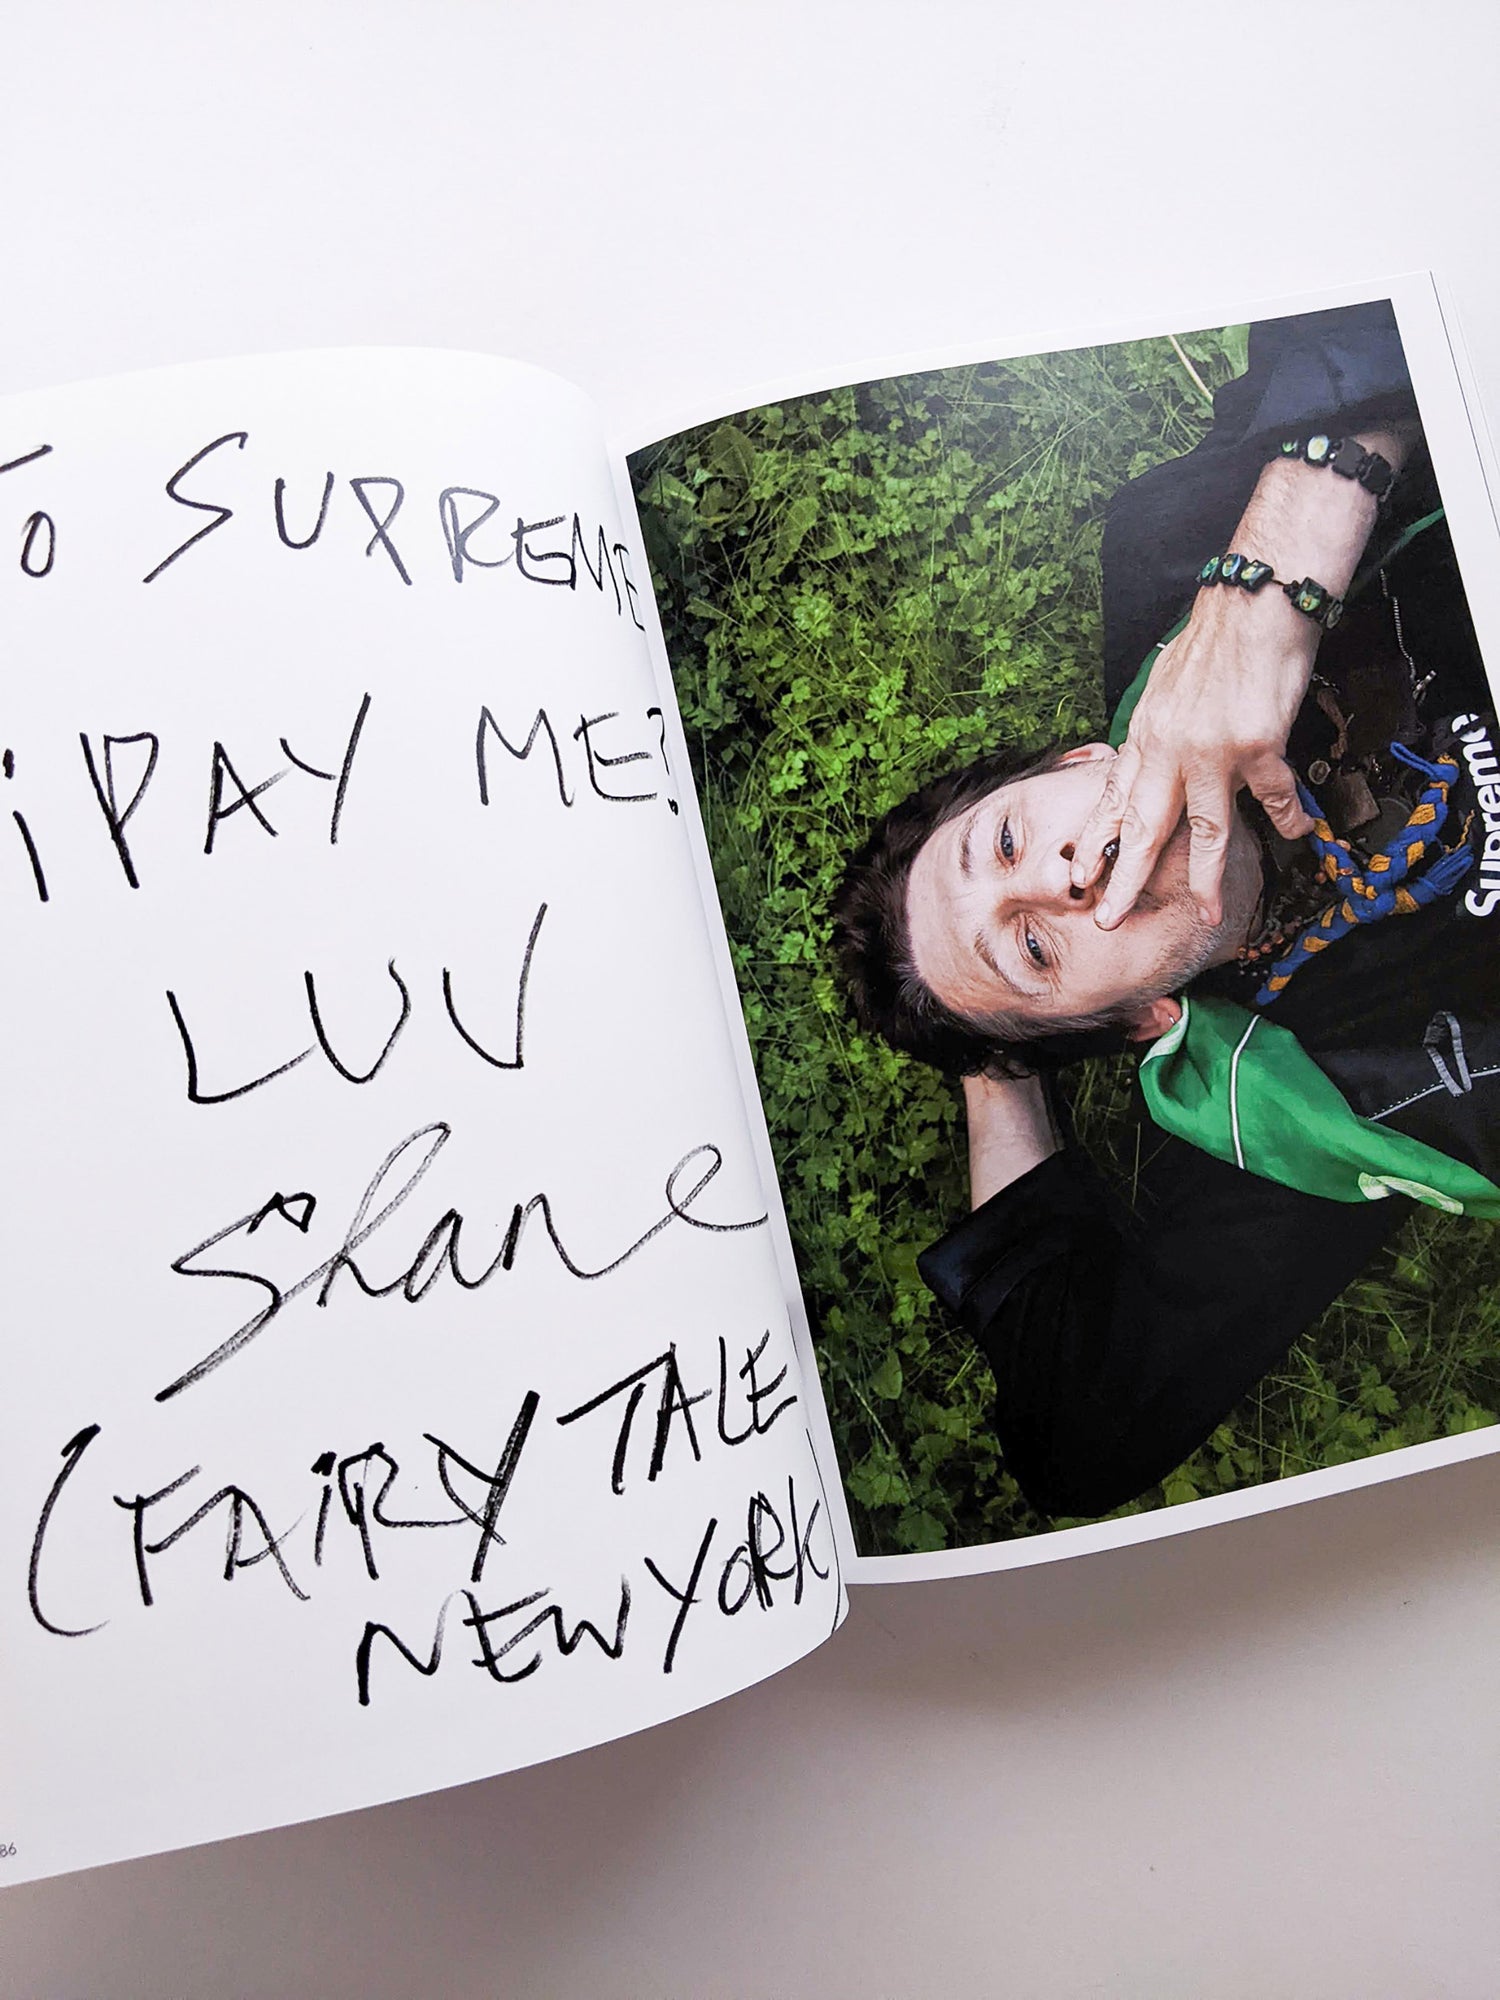 TO SUPREME
iPAY ME?
LUV
Shane
(FAiRY TALE
NEW YORK)
86
Supreme